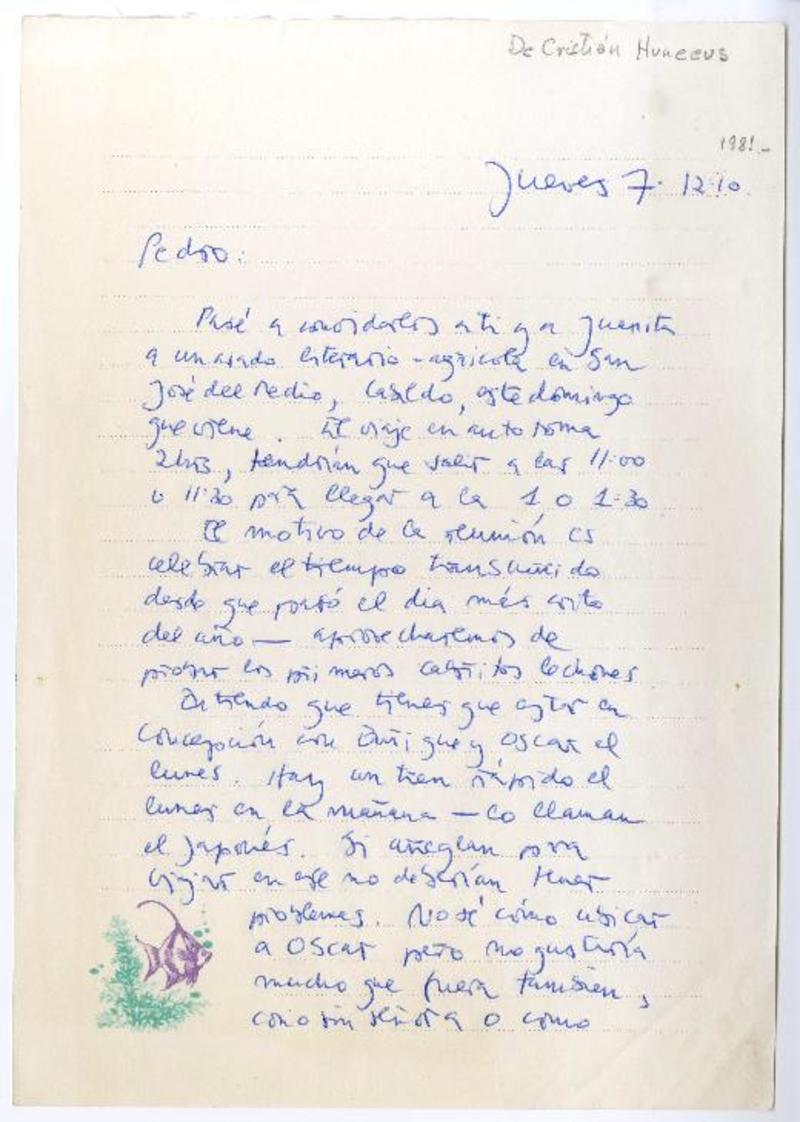 De Cristián Huneeus
1981.-
Jueves 7. 12.10
Pedro:
Pasé a convidarlos a ti y a Juanita
a un asado literario-agrícola en San
José del Pedio, Cabildo, este domingo
que viene. El viaje en auto toma
2 hrs, tendrían que salir a las 11:00
u 11:30 para llegar a la 1 o 1:30
El motivo de la reunión es
celebrar el tiempo transcurrido
desde que pasó el día más corto
del año — aprovecharemos de
probar los primeros cabritos lechones
Entiendo que tienes que estar en
Concepción con Enrique y Oscar el
lunes. Hay un tren rápido el
lunes en la mañana — lo llaman
el Japonés. Si arreglan para
viajar en ese no deberían tener
problemas. No sé cómo ubicar
a Oscar pero me gustaría
mucho que fuera también,
con o sin señora o como